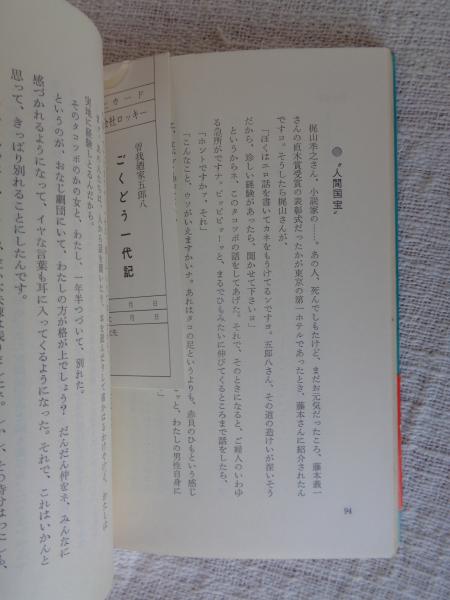 "人間国宝"
梶山季之さん、小説家の…。あの人、死んでしもたけど、まだお元気だったころ、藤本義一
さんの直木賞受賞の表彰式だったかが東京の第一ホテルであったとき、藤本さんに紹介されたん
ですヨ。そうしたら梶山さんが、
「ぼくはエロ話を書いてカネをもうけてるンですヨ。五郎八さん、その道の造けいが深いそう
だから、珍しい経験があったら、聞かせて下さいヨ」
というからネ、このタコツボの話をしてあげた。それで、そのときになると、ご婦人のいわゆ
る急所がですナ。ビッビッビャーッと、まるでひもみたいに伸びてくるところまで話をしたら、
「ホントですかァ、それ」
「こんなこと、ウソがいえますかいナ。あれはタコの足というよりも、赤貝のひもという感じ
ーッと、わたしの男性自身に
94
カード
会社ロッキー
曽我廼家五郎八
ごくどう一代記
月 日
月 日
実地に経験しよるんだから。
そのタコツボのかの女と、わたし、一年半つづいて、別れた。
というのが、おなじ劇団にいて、わたしの方が格が上でしょう？ だんだん仲をネ、みんなに
感づかれるようになって、イヤな言葉も耳に入ってくるようになった。それで、これはいかんと
思って、きっぱり別れることにしたんです。